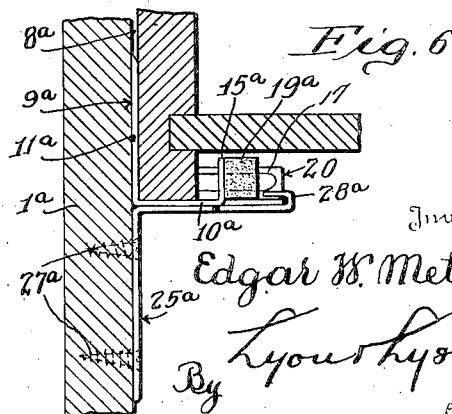 Fig. 6
8ª
9ª
11ª
1ª
27ª
25ª
15ª
19ª
17
20
28ª
10ª
Edgar W. Met
By